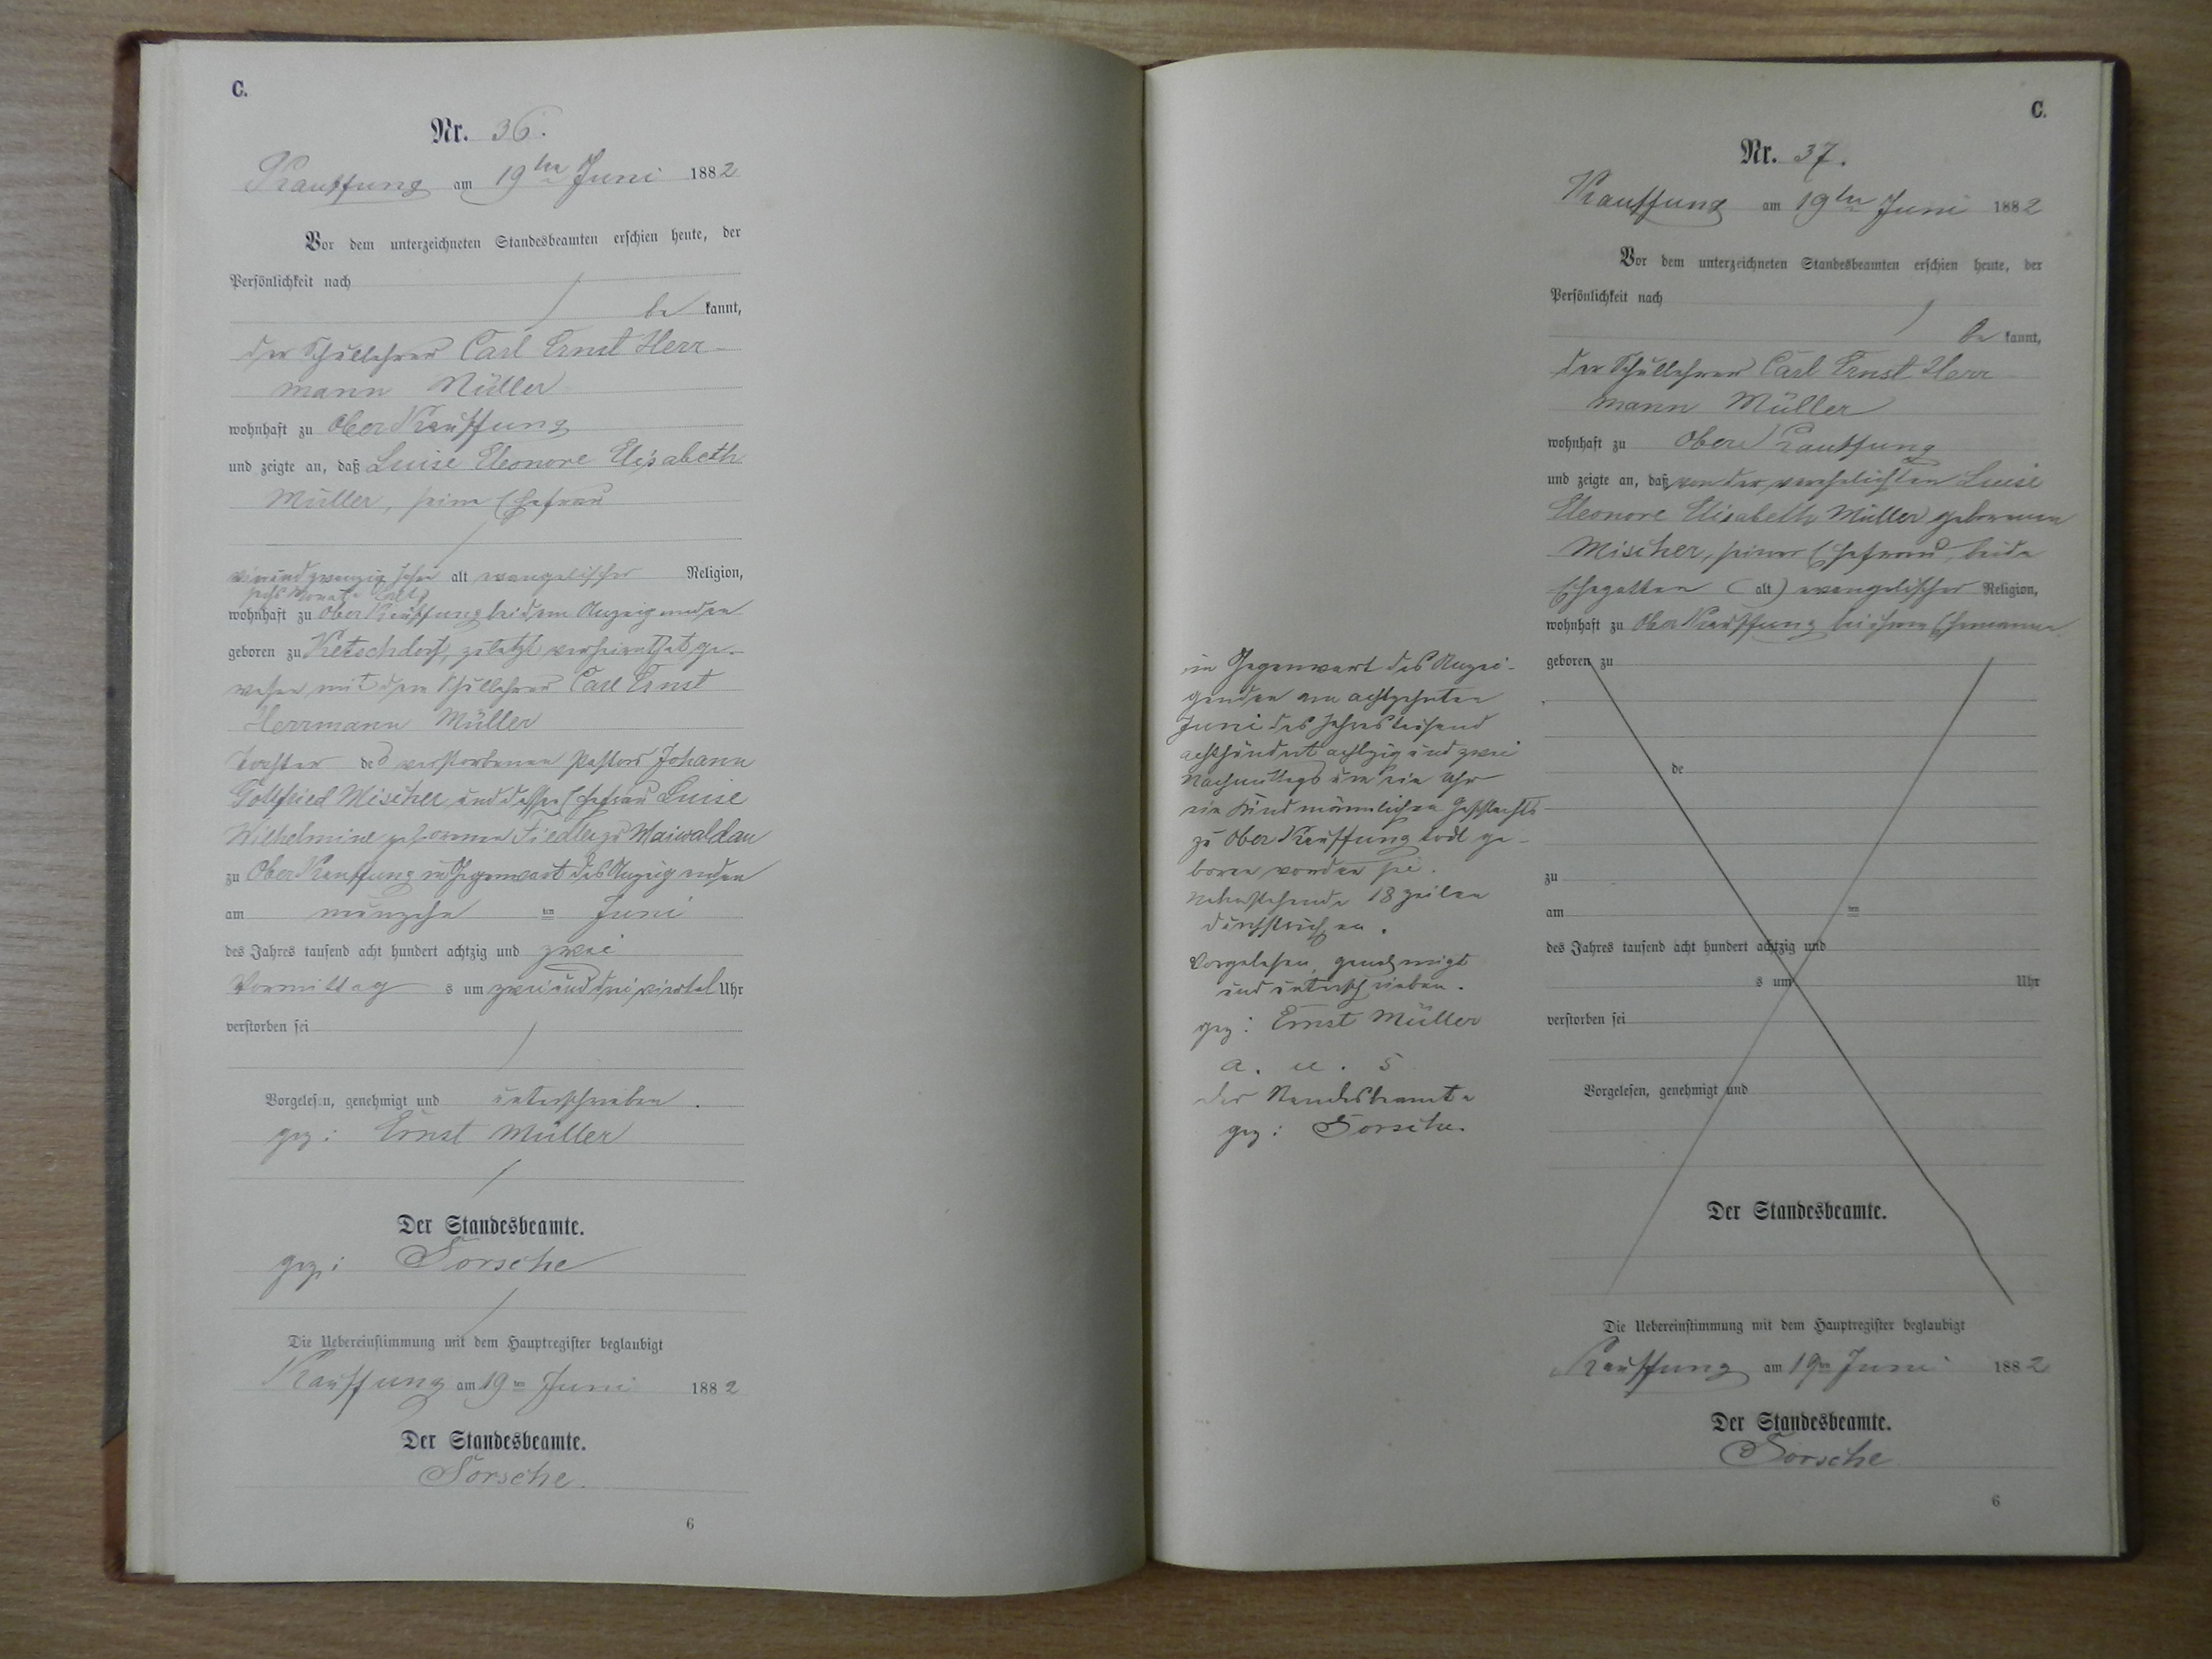 C.
Nr. 36.
Kauffung am 19ten Juni 1882
Vor dem unterzeichneten Standesbeamten erschien heute, der
Persönlichkeit nach
be kannt,
der Schullehrer Carl Ernst Herr-
mann Müller
wohnhaft zu Ober Kauffung
und zeigte an, daß Luise Eleonore Elisabeth
Müller, seine Ehefrau
vierundzwanzig Jahre alt evangelischer Religion,
sechs Monate
wohnhaft zu Ober Kauffung bei dem Anzeigenden
geboren zu Ketschdorf, zuletzt verheirathet ge-
wesen mit dem Schullehrer Carl Ernst
Herrmann Müller
Tochter des verstorbenen Pastors Johann
Gottfried Mischer und dessen Ehefrau Luise
Wilhelmine geborenen Fiedler zu Maiwaldau
zu Ober Kauffung in Gegenwart des Anzeigenden
am neunzehn ten Juni
des Jahres tausend acht hundert achtzig und zwei
Vormittag s um zwei und drei viertel Uhr
verstorben sei
Vorgelesen, genehmigt und unterschrieben.
gez: Ernst Müller
Der Standesbeamte.
gez: Sorsche
Die Uebereinstimmung mit dem Hauptregister beglaubigt
Kauffung am 19ten Juni 1882
Der Standesbeamte.
Sorsche.
6
C.
Nr. 37.
Kauffung am 19ten Juni 1882
Vor dem unterzeichneten Standesbeamten erschien heute, der
Persönlichkeit nach
be kannt,
der Schullehrer Carl Ernst Herr
mann Müller
wohnhaft zu Ober Kauffung
und zeigte an, daß von der verehelichten Luise
Eleonore Elisabeth Müller geborenen
Mischer, seiner Ehefrau, beide
Ehegatten (alt) evangelischer Religion,
wohnhaft zu Ober Kauffung bei ihrem Ehemanne
in Gegenwart des Anzei-
genden am achtzehnten
Juni des Jahres tausend
achthundert achtzig und zwei
Nachmittags um ein Uhr
ein Kind männlichen Geschlechts
zu Ober Kauffung todt ge-
boren worden sei.
Nebenstehende 18 Zeilen
durchstrichen.
Vorgelesen, genehmigt
und unterschrieben.
gez: Ernst Müller
a. u. s
der Standesbeamte
gez: Sorsche.
geboren zu
de
zu
am ten
des Jahres tausend acht hundert achtzig und
s um Uhr
verstorben sei
Vorgelesen, genehmigt und
Der Standesbeamte.
Die Uebereinstimmung mit dem Hauptregister beglaubigt
Kauffung am 19ten Juni 1882
Der Standesbeamte.
Sorsche
6